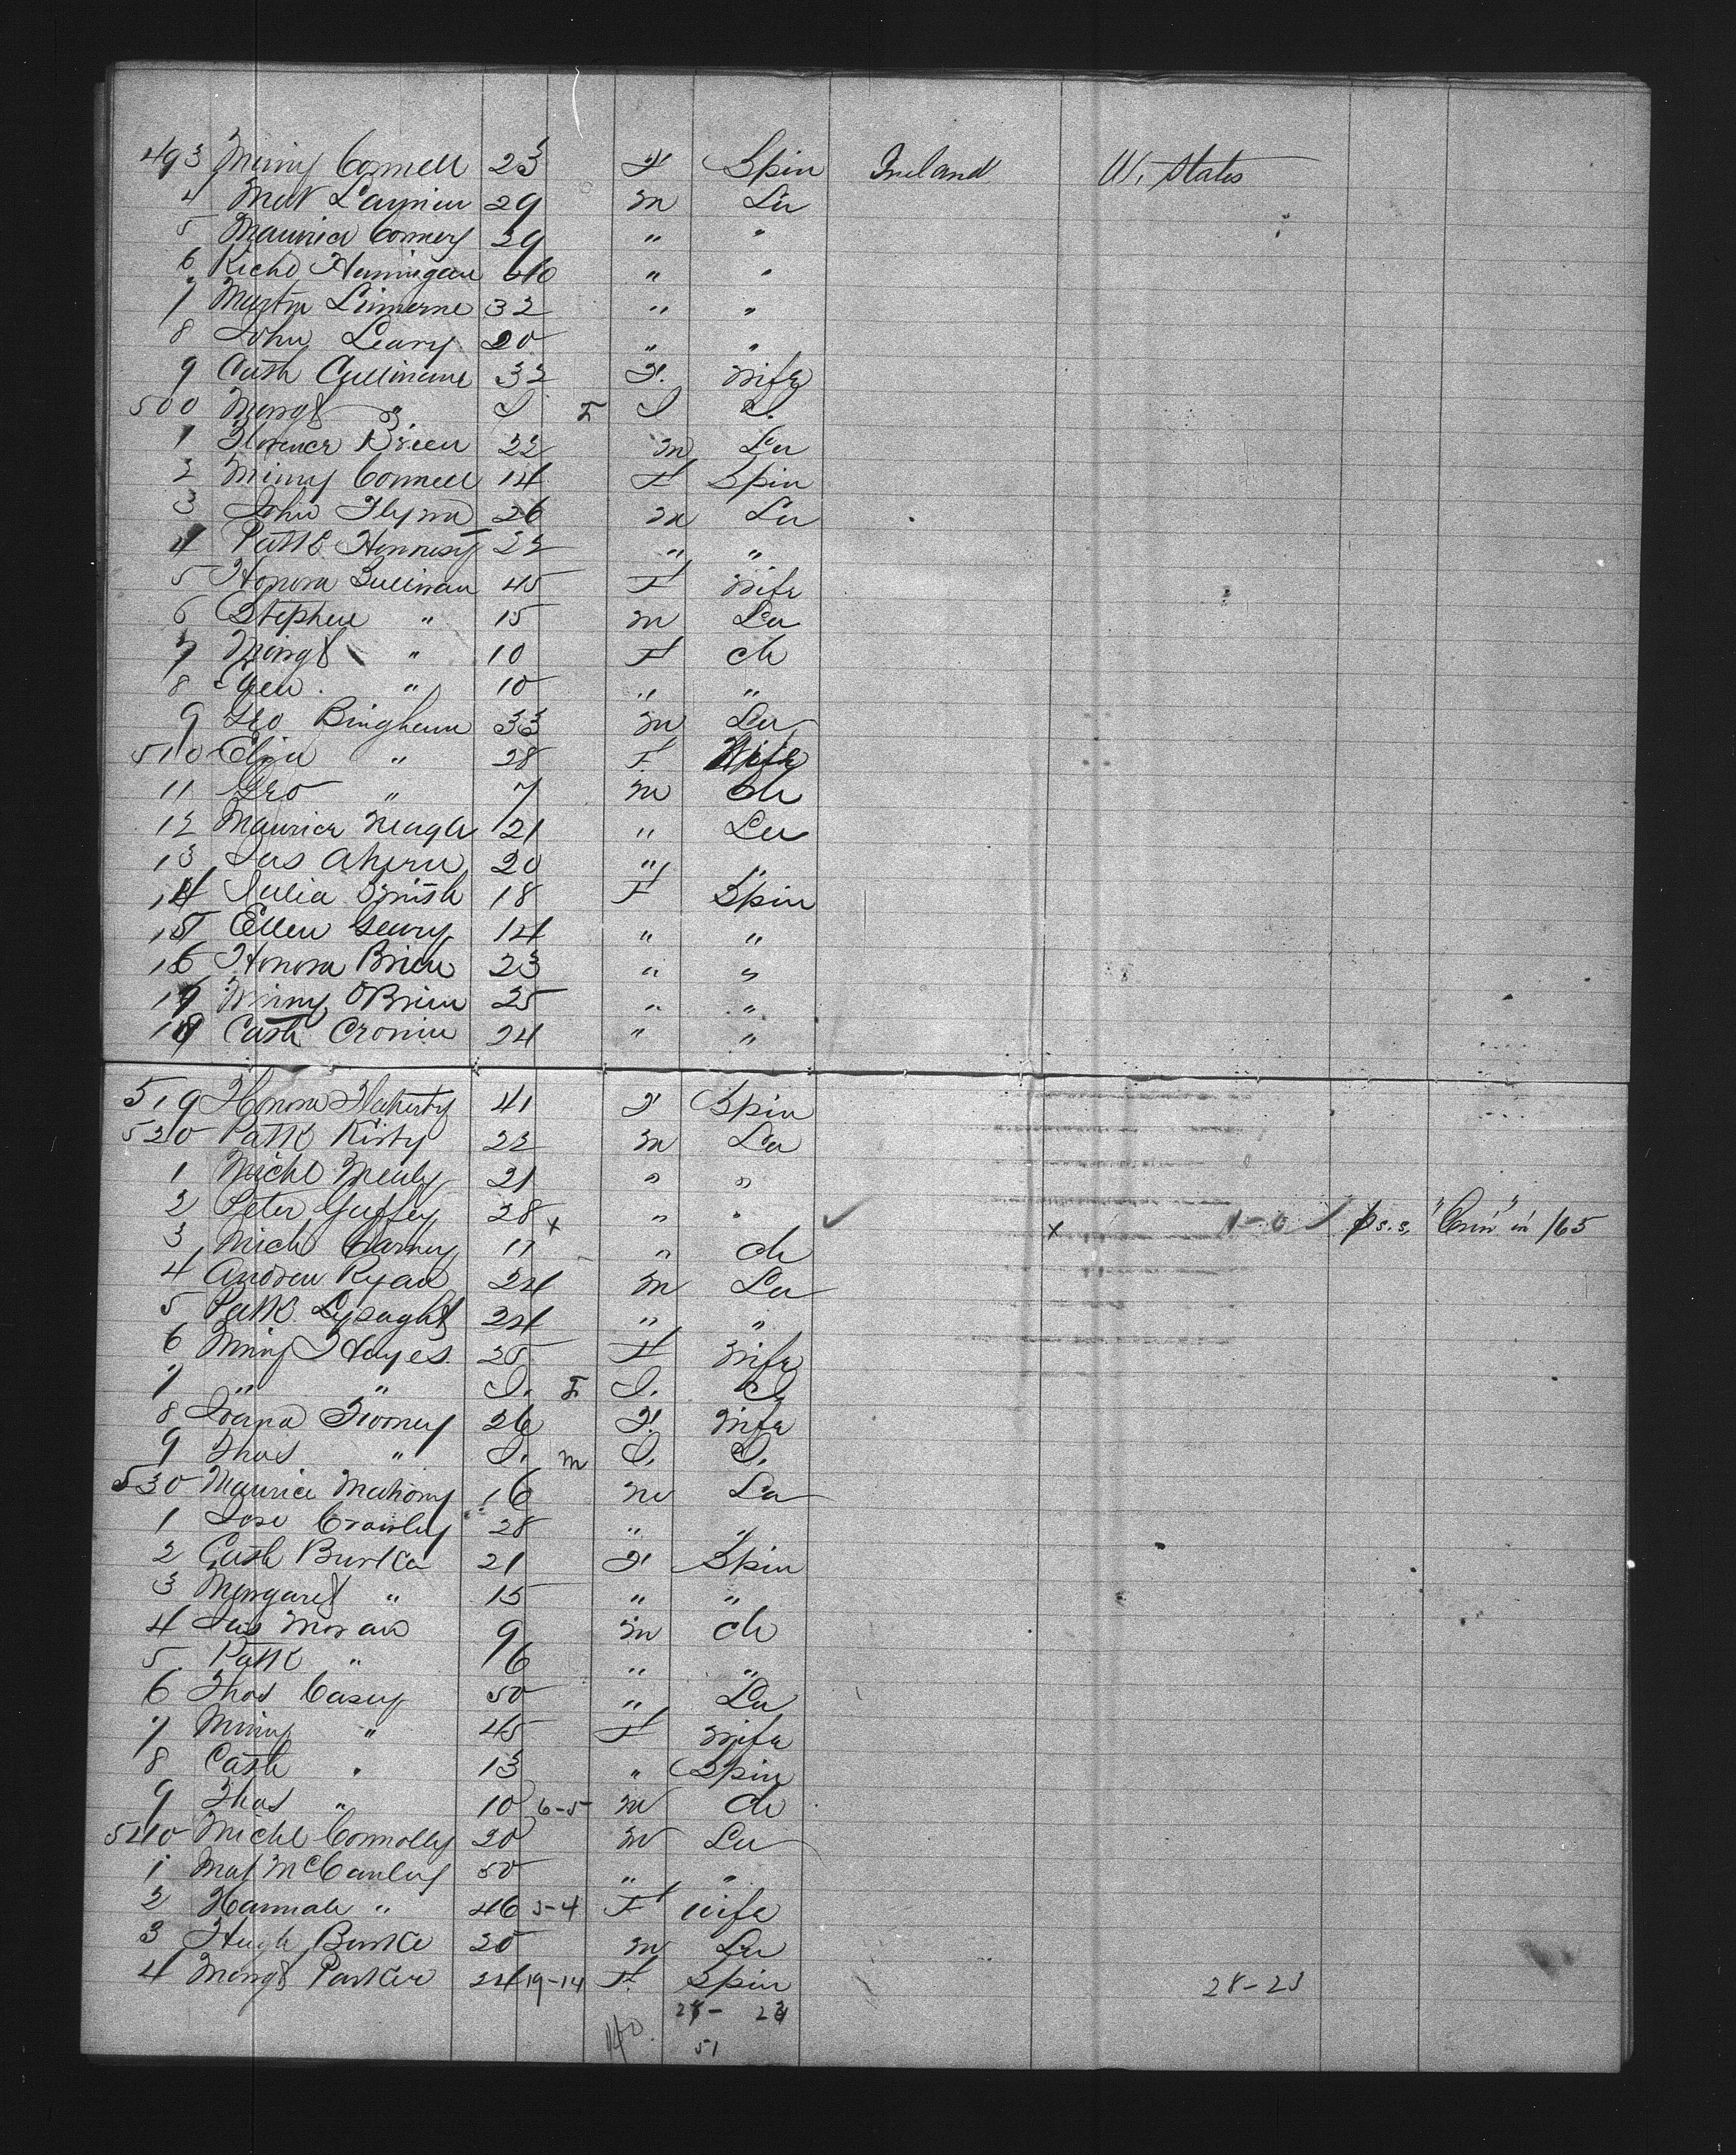 493 Minny Connell 23 F Spin Ireland U. States
4 29 m La
5 Maurice Connery 29 " "
6 Richd Hannigan " "
7 Martin 32 " "
8 John Leary 20 " "
9 Cath Cullinane 32 F. Wife
500 Margt " I F I I.
1 Florence Brien 22 m La
2 Minny Connell 14 F Spin
3 John Flynn 26 m La
4 Patk Hennesy 22 " "
5 Honora Sullivan 45 F Wife
6 Stephen " 15 m La
7 Margt " 10 F ch
8 Ellen " 10 " "
9 Geo Bingham 33 m La
510 Eliza " 28 F Wife
11 Geo " 7 m ch
12 Maurice Neagle 21 " La
13 Jas Ahern 20 " "
14 Julia Smith 18 F Spin
15 Ellen Geary 14 " "
16 Honora Brien 23 " "
17 Minny O'Brien 25 " "
18 Cath Cronin 24 " "
519 Honora Flaherty 41 F Spin
520 Patk Kirby 22 m La
1 Michl Nealy 21 " "
2 Peter Guffey 28 x " " ✓ x 1-0 ✓ p s.s. "Erin" in '65
3 Mich Carney 11 " ch
4 Andrew Ryan 24 m La
5 Patk Lysaght 24 " "
6 Minny Hayes 25 F Wife
7 " " I. F I. I.
8 Joana Twomey 26 F. Wife
9 Thos " I. m I. I.
530 Maurice Mahony 16 m La
1 Jose Crowley 28 " "
2 Cath Burke 21 F Spin
3 Margaret " 15 " "
4 Jas Moran 9 m ch
5 Patk " 6 " "
6 Thos Casey 50 " La
7 Minny " 45 F Wife
8 Cath " 13 " Spin
9 Thos " 10 6-5 m ch
540 Michl Connolly 20 m La
1 Mat McCauley 50 " "
2 Hannah " 46 5-4 F wife
3 Hugh Burke 20 m La
4 Margt Parker 24 19-14 F. Spin 28-23
28- 23
40. 51